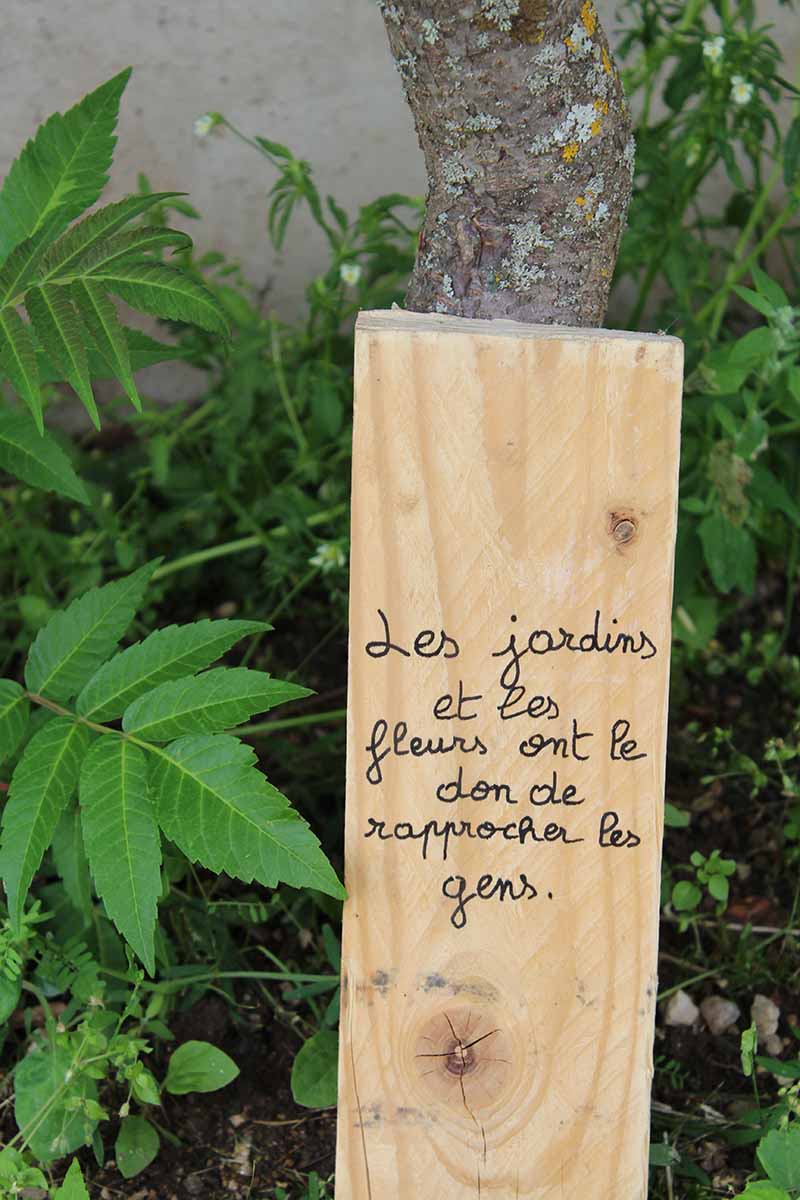 Les jardins
et les
fleurs ont le
don de
rapprocher les
gens.